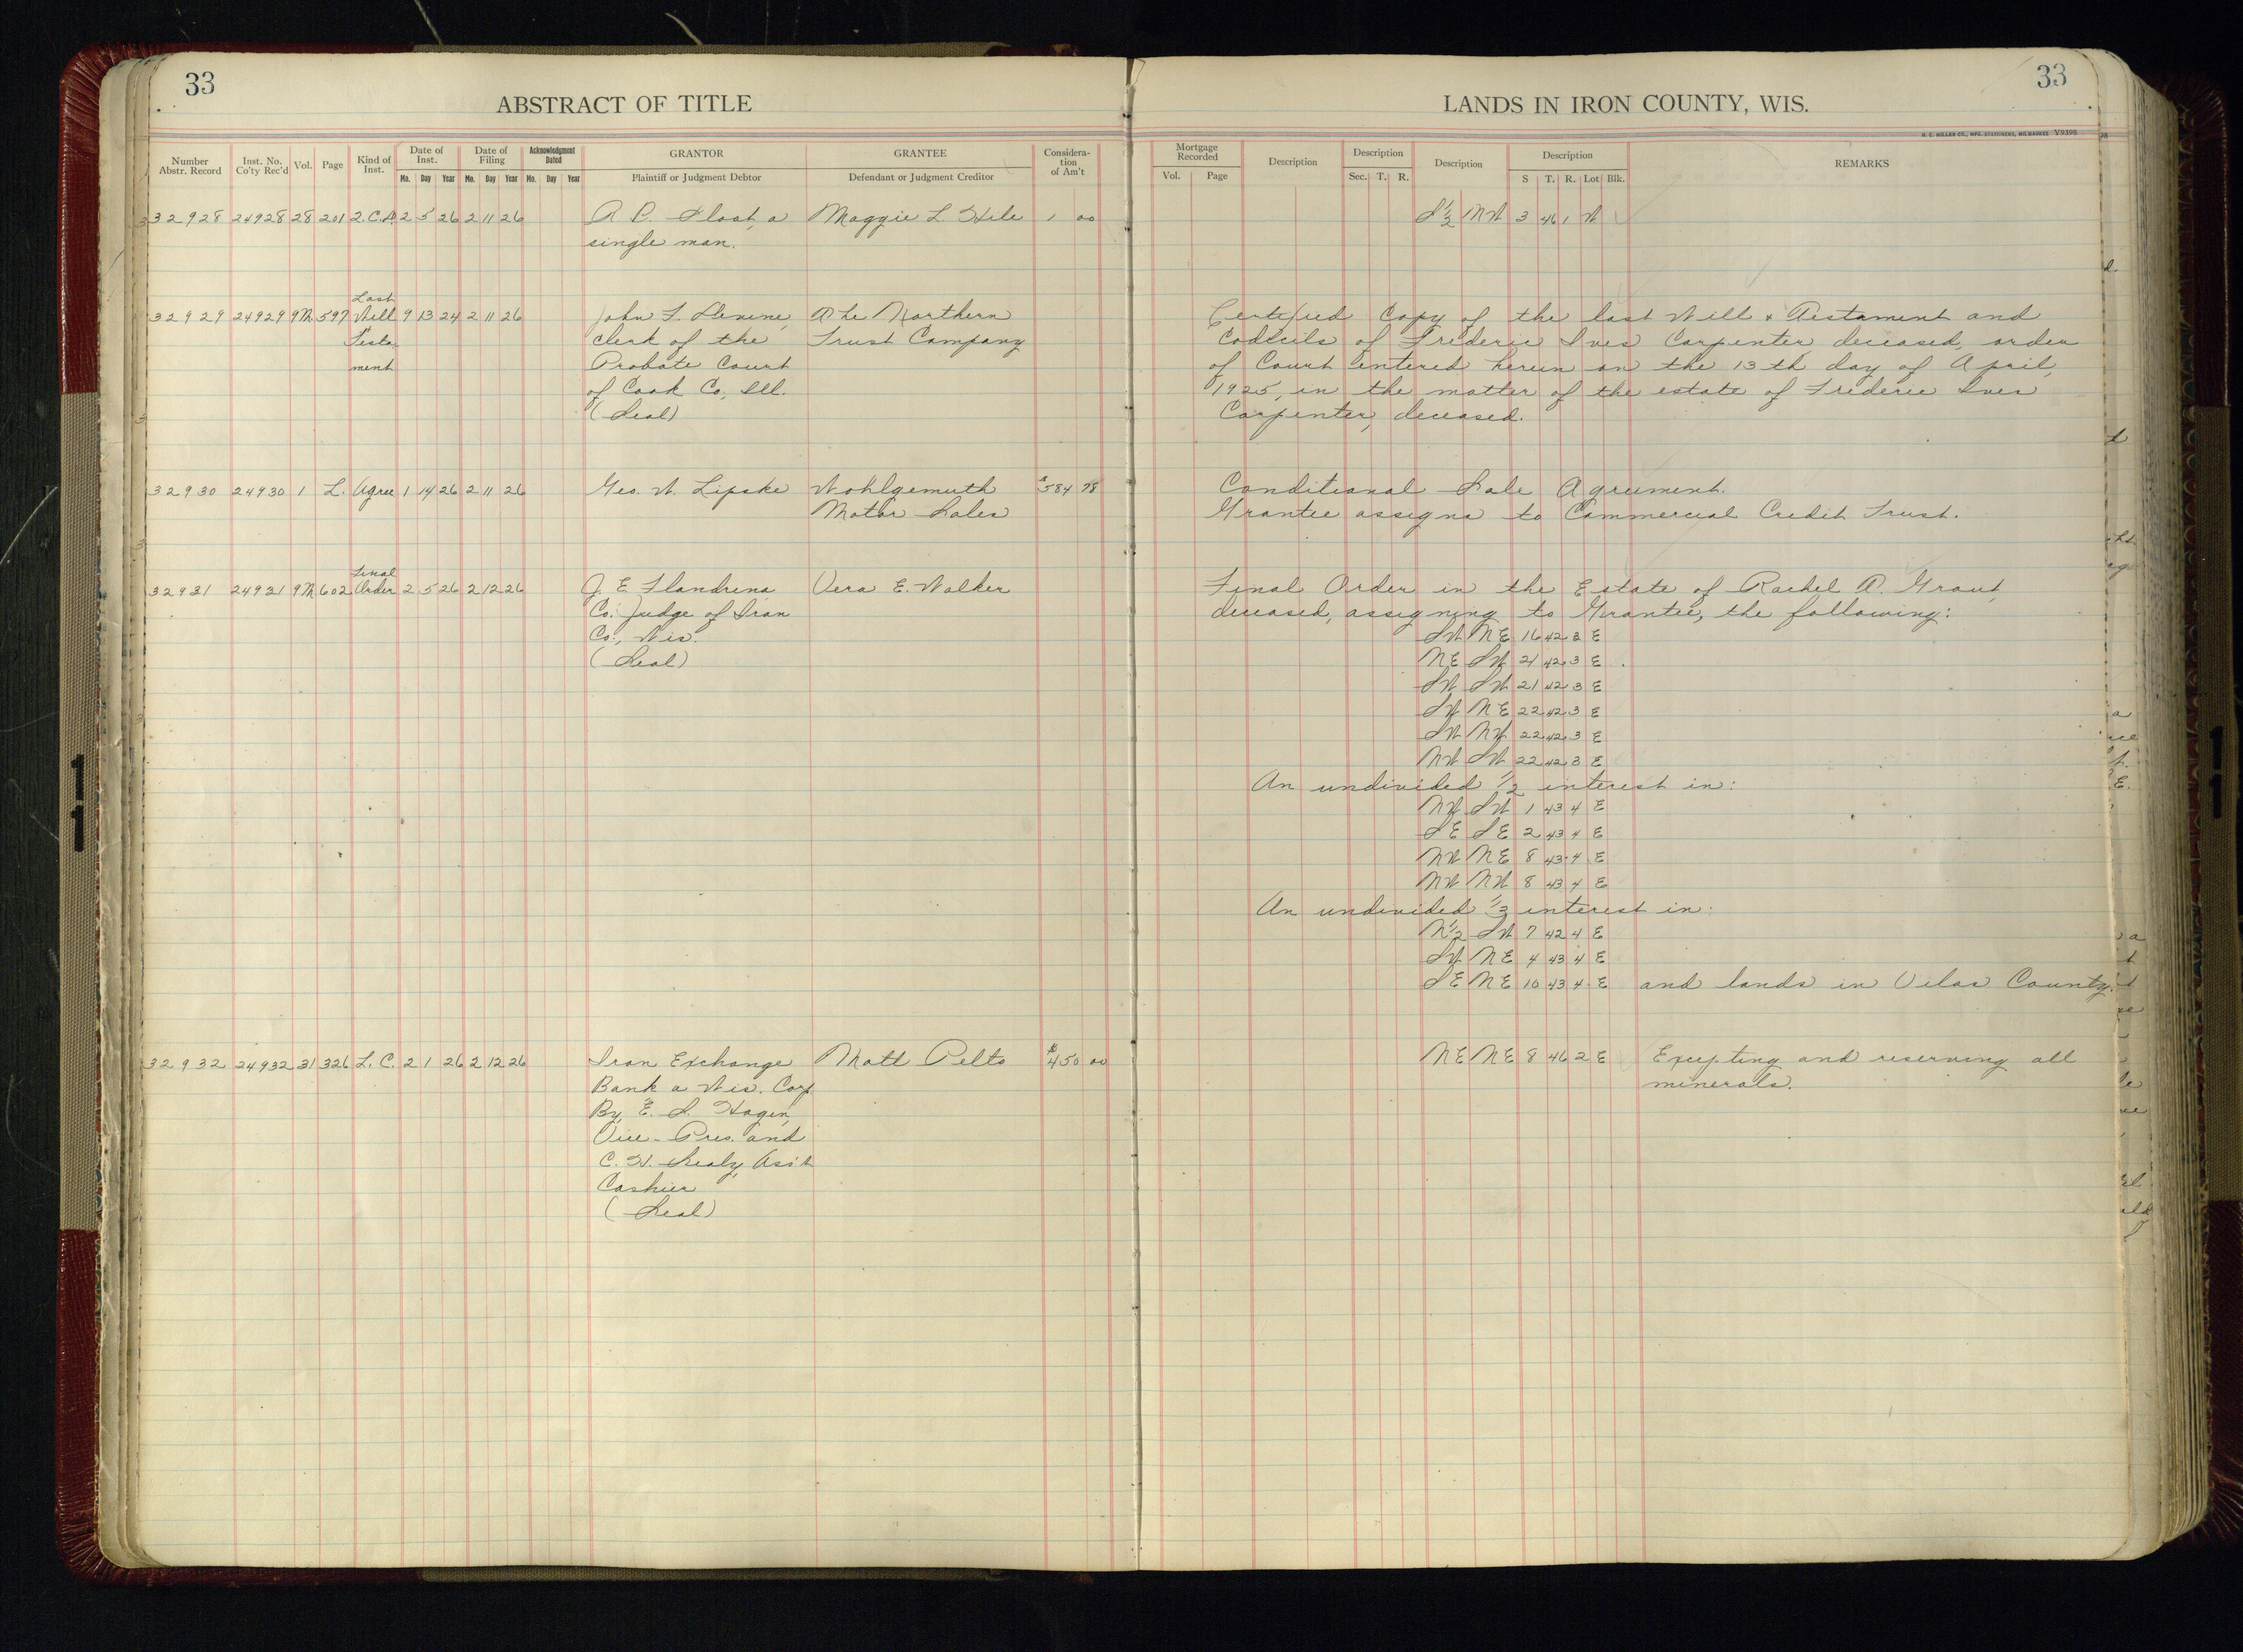 33
ABSTRACT OF TITLE
Number Abstr. Record Inst. No. Co'ty Rec'd Vol. Page Kind of Inst. Date of Inst. Mo. Day Year Date of Filing Mo. Day Year Acknowledgment Dated Mo. Day Year GRANTOR Plaintiff or Judgment Debtor GRANTEE Defendant or Judgment Creditor Considera-tion of Am't
33
LANDS IN IRON COUNTY, WIS.
H. C. MILLER CO., MFG. STATIONERS, MILWAUKEE Y9398
Mortgage Recorded Vol. Page Description Description Sec. T. R. Description Description S T. R. Lot Blk. REMARKS
32928 24928 28 201 2.C.D. 2 5 26 2 11 26 A. P. a Maggie L. Hile 1 00 S½ NW 3 46 1 W
single man.
Last
32929 24929 9M 597 Will 9 13 24 2 11 26 John F. Devine, The Northern Certified Copy of the last Will & Testament and
Testa- Clerk of the Trust Company Codicils of Frederic Ives Carpenter deceased, order
ment Probate Court of Court entered herein on the 13th day of April,
of Cook Co., Ill. 1925, in the matter of the estate of Frederic Ives
(Seal) Carpenter, deceased.
32930 24930 1 L. Agree 1 14 26 2 11 26 Geo. W. Lipske Wohlgemuth $584 78 Conditional Sale Agreement.
Motor Sales Grantee assigns to Commercial Credit Trust.
Final
32931 24931 9M 602 Order 2 5 26 2 12 26 J. E. Flandrena Vera E. Walker Final Order in the Estate of Rachel A. Grant
Co. Judge of Iron deceased, assigning to Grantee, the following:
Co., Wis. SW NE 16 42 3 E
(Seal) NE SW 21 42 3 E
SW SW 21 42 3 E
SW NE 22 42 3 E
SW NW 22 42 3 E
NW SW 22 42 3 E
An undivided ½ interest in:
NW SW 1 43 4 E
SE SE 2 43 4 E
NW NE 8 43 4 E
NW NW 8 43 4 E
An undivided ⅓ interest in:
N½ SW 7 42 4 E
SW NE 4 43 4 E
SE NE 10 43 4 E and lands in Vilas County.
32932 24932 31 326 L. C. 2 1 26 2 12 26 Iron Exchange Matt Pelto $450 00 NE NE 8 46 2 E Excepting and reserving all
Bank a Wis. Corp. minerals.
By E. S. Hagen,
Vice-Pres. and
C. H. Ass't
Cashier
(Seal)